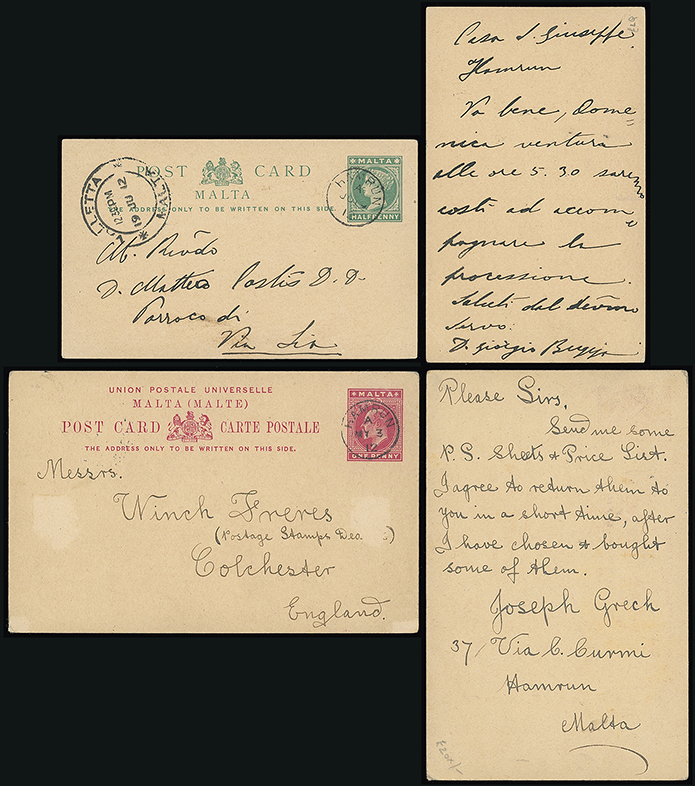 POST CARD
MALTA
THE ADDRESS ONLY TO BE WRITTEN ON THIS SIDE.
MALTA
HALFPENNY
VALLETTA MALTA
12 30 PM
19 JU 12
HAMRUN
D. Matteo Castis D. D.
Parroco di
Casa S. Giuseppe
Hamrun
Va bene, Dome
nica ventura
alle ore 5.30 saremo
costì ad accom
pagnare la
processione.
Saluti dal devmo
servo.
D. Giorgio
UNION POSTALE UNIVERSELLE
MALTA (MALTE)
POST CARD CARTE POSTALE
THE ADDRESS ONLY TO BE WRITTEN ON THIS SIDE.
MALTA
ONE PENNY
HAMRUN
A
MY 3
12
Messrs.
Winch Freres
(Postage Stamps Dea s)
Colchester
England.
Please Sirs,
Send me some
P.S. Sheets & Price List.
I agree to return them to
you in a short time, after
I have chosen & bought
some of them.
Joseph Grech
37 Via C. Curmi
Hamrun
Malta